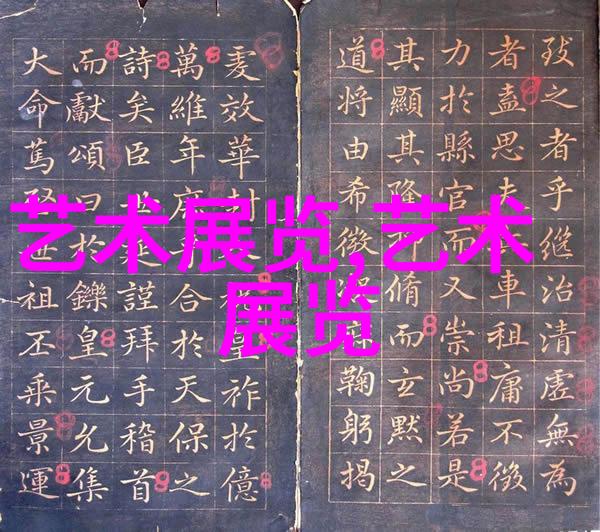 艺术展览,艺术
展览
致之者乎繼治清虛無為
者盍思車租庸不徵
力於縣官而又崇尚若是
其顯其隆所脩而玄默之
道將由希微鞠躬揭
虔效華封祝皇祚於億
萬維年合於天保之
詩矣臣世延謹拜手稽首
而獻頌曰於鑠皇元允集
大命篤世祖丕乘景運